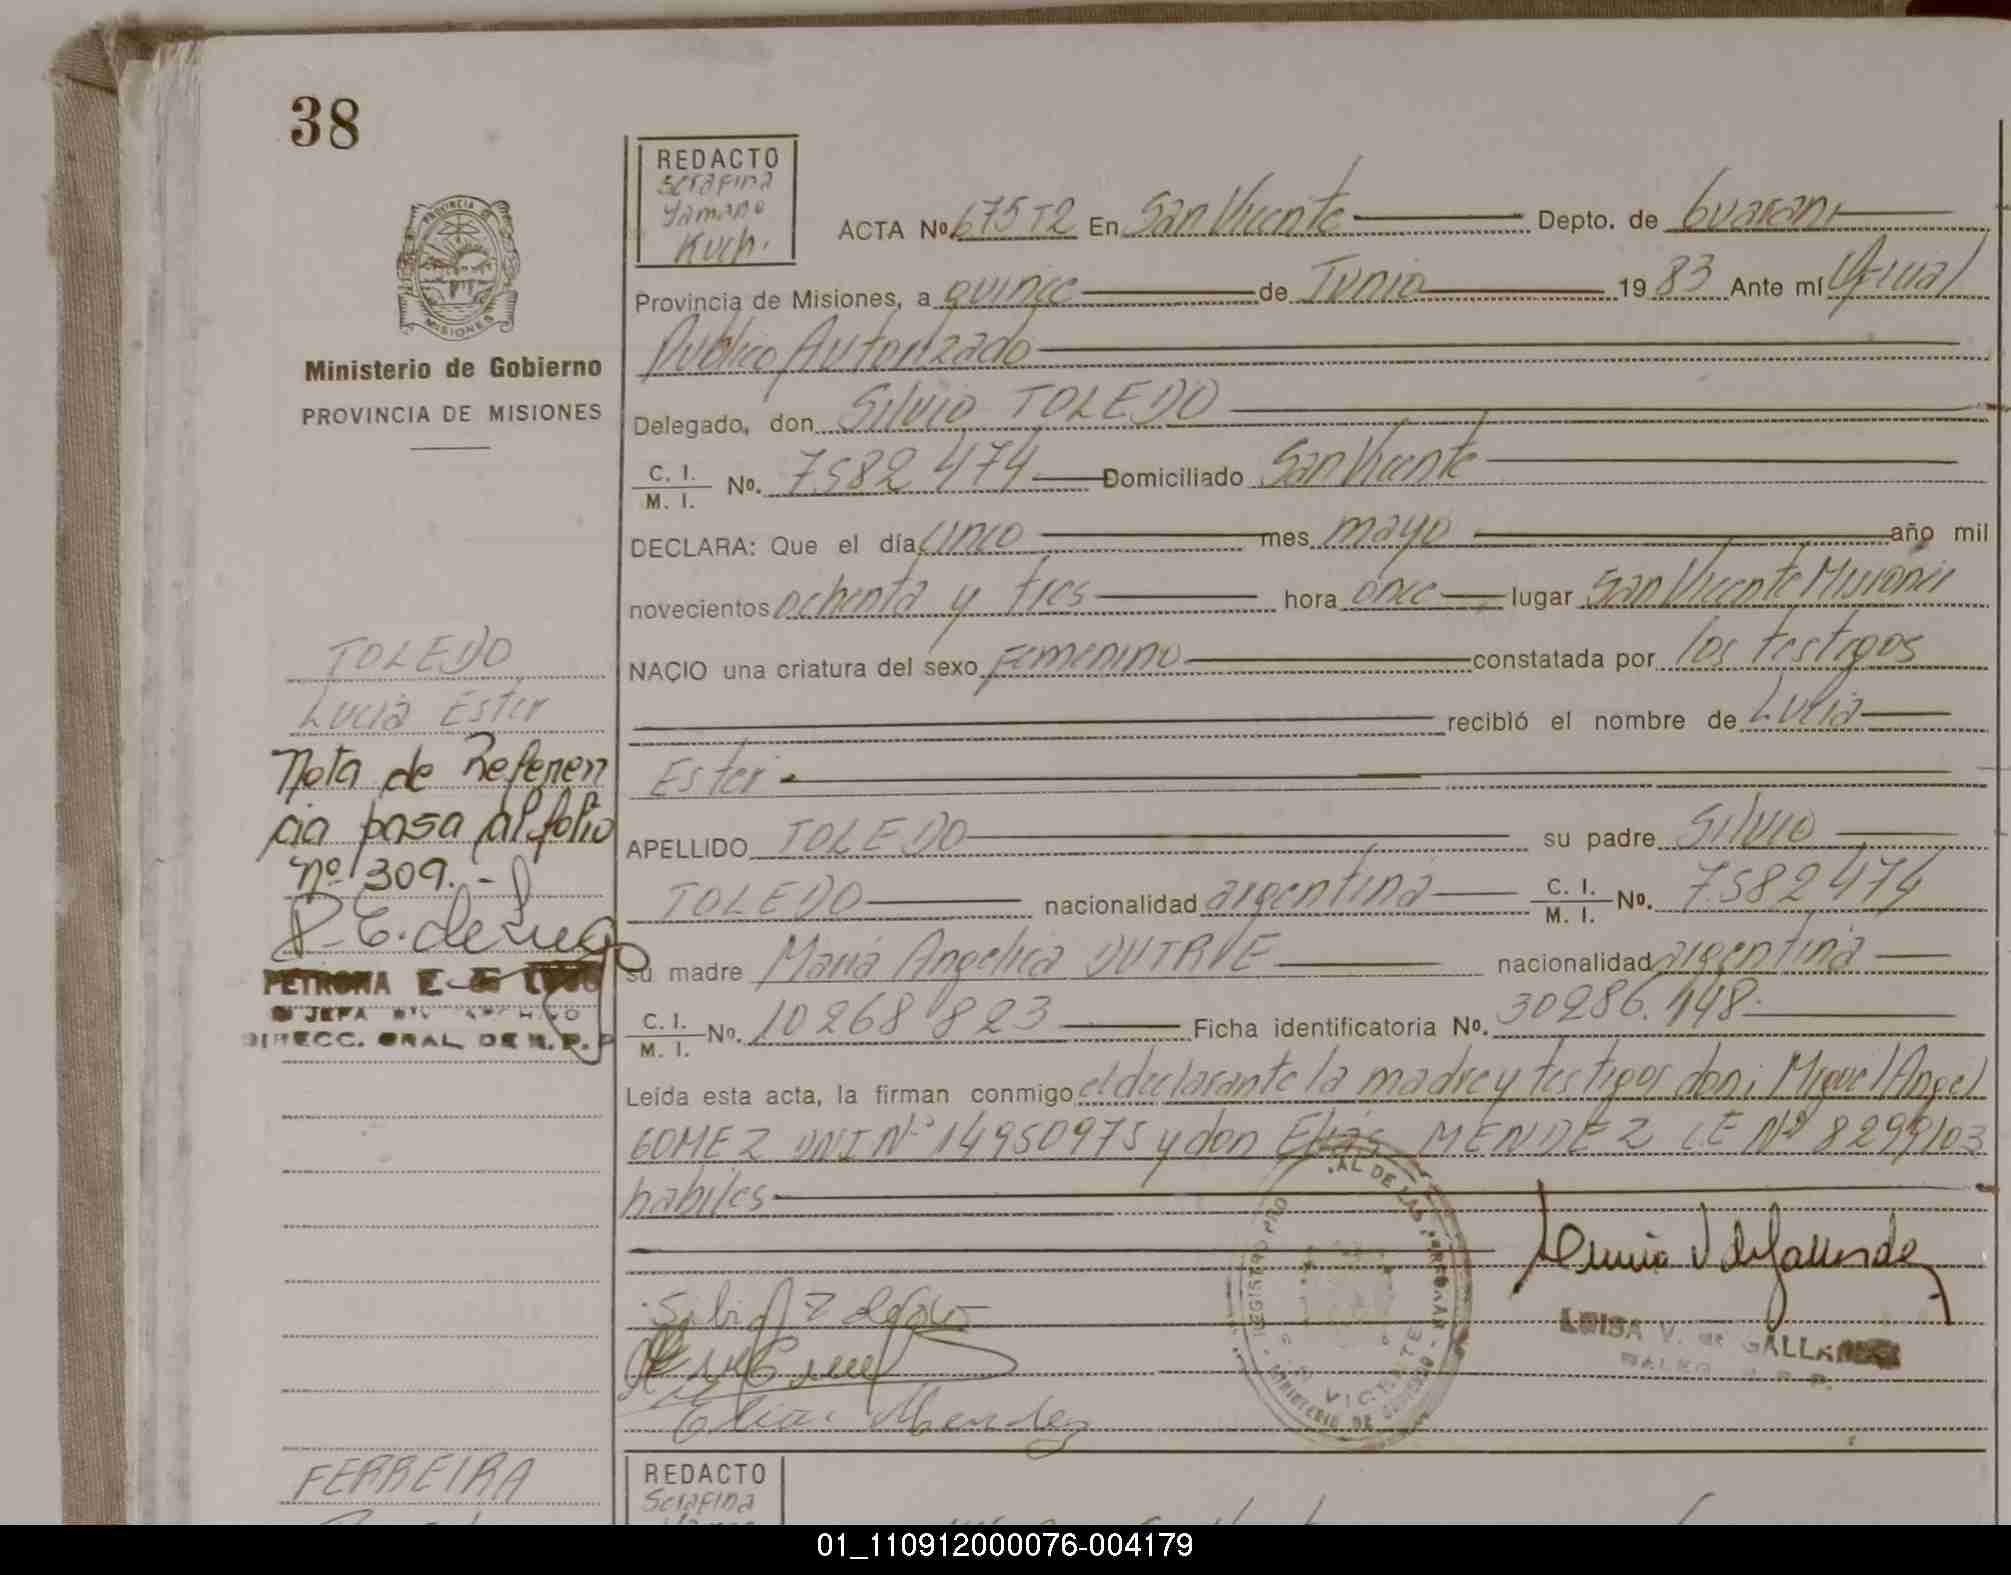 38
REDACTO
Serafina
Yamano
Kuch.
PROVINCIA DE
MISIONES
Ministerio de Gobierno
PROVINCIA DE MISIONES
ACTA No. 675 T2 En San Vicente Depto. de Guaraní
Provincia de Misiones, a quince de Junio 1983 Ante mí Oficial
Publico Autorizado
Delegado, don Silvio TOLEDO
C. I.
M. I. No. 7582474 Domiciliado San Vicente
DECLARA: Que el día cinco mes mayo año mil
novecientos ochenta y tres hora once lugar San Vicente Misiones
NACIO una criatura del sexo femenino constatada por los testigos
recibió el nombre de Lucia
Ester
APELLIDO TOLEDO su padre Silvio
TOLEDO nacionalidad argentina C. I.
M. I. No. 7582474
su madre María Angelica DUTRVE nacionalidad argentina
C. I.
M. I. No. 10268823 Ficha identificatoria No. 30286.448
Leída esta acta, la firman conmigo el declarante la madre y testigos don: Miguel Angel
GOMEZ DNI Nº 14950975 y don Elías MENDEZ LE Nº 8299103
habiles
TOLEDO
Lucia Ester
Nota de Referen
cia pasa al folio
nº 309.-
P. E. de Lugo
PETRONA E. DE LUGO
JEFA ARCHIVO
DIRECC. GRAL DE R. P. P
REGISTRO PRO AL DE LAS PERSONAS
S. VICENTE
MINISTERIO DE GOBIERNO
LUISA V. de GALLARDO
Elias Mendez
FERREIRA
REDACTO
Serafina